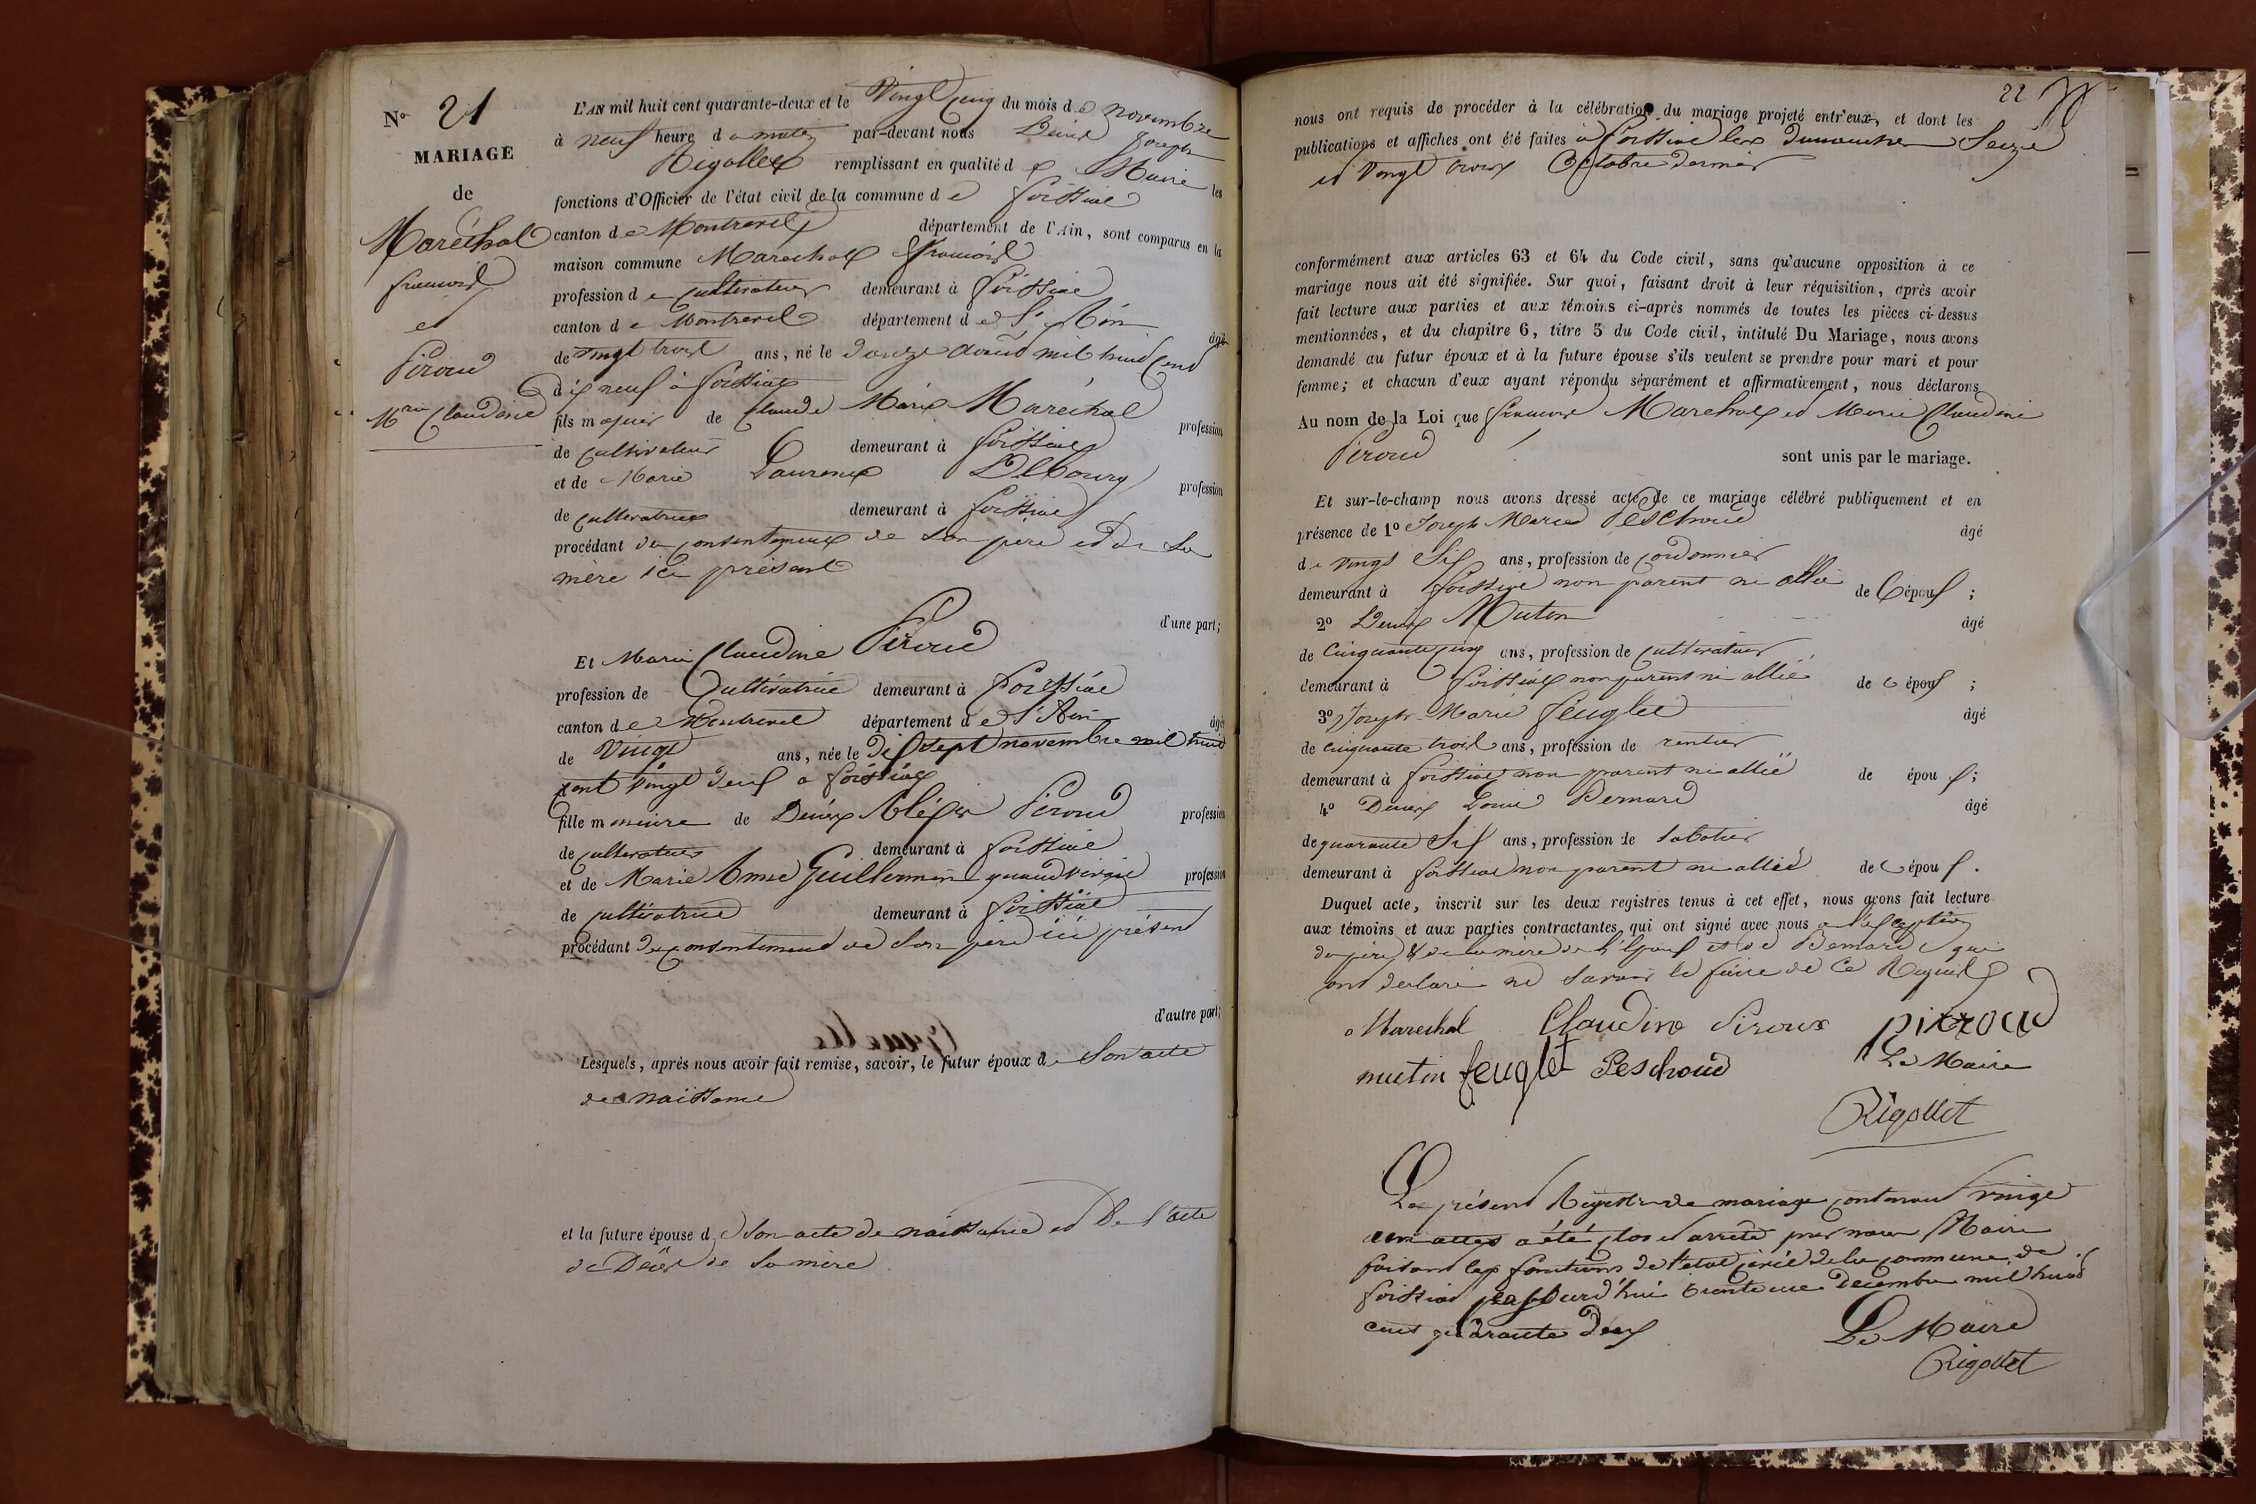 N° 21
MARIAGE
de
Maréchal
françois
et
Piroud
Mie Claudine
L'AN mil huit cent quarante-deux et le Vingt cinq du mois de novembre
à neuf heure du matin par-devant nous Denis Joseph
Rigollet remplissant en qualité de Maire les
fonctions d'Officier de l'état civil de la commune de foissiat
canton de Montrevel département de l'Ain, sont comparus en la
maison commune Marechal françois
profession de cultivateur demeurant à foissiat
canton de Montrevel département de l'Ain âgé
de vingt trois ans, né le douze aout mil huit cent
dix neuf à foissiat
fils majeur de Claude Marie Maréchal profession
de cultivateur demeurant à foissiat
et de Marie Laurence Debourg profession
de cultivatrice demeurant à foissiat
procédant du consentement de son père et de sa
mère ici présent
d'une part;
Et Marie Claudine Piroud
profession de Cultivatrice demeurant à foissiat
canton de Montrevel département de l'Ain âgé
de Vingt ans, née le dix sept novembre mil huit
cent vingt deux a foissiat
fille mineure de Denis Aléxis Piroud profession
de cultivateur demeurant à foissiat
et de Marie Anne Guillermin quand vivait profession
de cultivatrice demeurant à foissiat
procédant du consentement de son père ici présent
d'autre part;
Lesquels, après nous avoir fait remise, savoir, le futur époux de son acte
de naissance
et la future épouse de son acte de naissance et de l'acte
de Décès de sa mère
22
nous ont requis de procéder à la célébration du mariage projeté entr'eux, et dont les
publications et affiches ont été faites a foissiat les dimanches Seize
et vingt trois Octobre dernier
conformément aux articles 63 et 64 du Code civil, sans qu'aucune opposition à ce
mariage nous ait été signifiée. Sur quoi, faisant droit à leur réquisition, après avoir
fait lecture aux parties et aux témoins ci-après nommés de toutes les pièces ci-dessus
mentionnées, et du chapitre 6, titre 5 du Code civil, intitulé Du Mariage, nous avons
demandé au futur époux et à la future épouse s'ils veulent se prendre pour mari et pour
femme; et chacun d'eux ayant répondu séparément et affirmativement, nous déclarons
Au nom de la Loi que françois Marechal et Marie Claudine
Piroud sont unis par le mariage.
Et sur-le-champ nous avons dressé acte de ce mariage célébré publiquement et en
présence de 1° Joseph Marie Peschoud âgé
de vingt Six ans, profession de cordonnier
demeurant à foissiat non parent ni allié de l'époux;
2° Denis Mutin âgé
de Cinquante cinq ans, profession de cultivateur
demeurant à foissiat non parent ni allié de l'époux;
3° Joseph Marie feuglet âgé
de cinquante trois ans, profession de rentier
demeurant à foissiat non parent ni allié de époux;
4° Denis Louis Bernard âgé
de quarante Six ans, profession de sabotier
demeurant à foissiat non parent ni allié de l'époux.
Duquel acte, inscrit sur les deux registres tenus à cet effet, nous avons fait lecture
aux témoins et aux parties contractantes qui ont signé avec nous a l'exception
du père & de la mère de l'époux et de Bernard qui
ont déclaré ne savoir le faire de Ce Requis
Marechal Claudine Piroux piroud
mutin feuglet Peschoud Le Maire
Rigollet
Le présent Registre de mariage contenant vingt
un actes a été clos et arrêté par nous Maire
faisant les fonctions de l'état civil de la commune de
foissiat jourd'hui trente un décembre mil huit
cent quarante deux
Le Maire
Rigollet